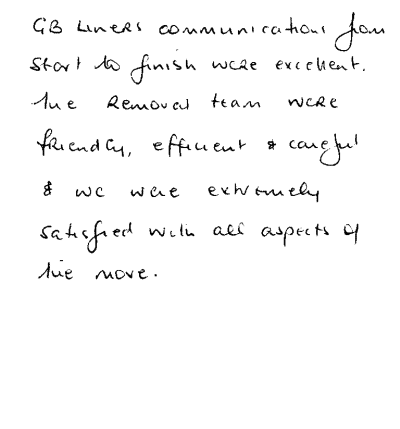 GB Liners communications from
start to finish were excellent.
The Removal team were
friendly, efficient & careful
& we were extremely
satisfied with all aspects of
the move.